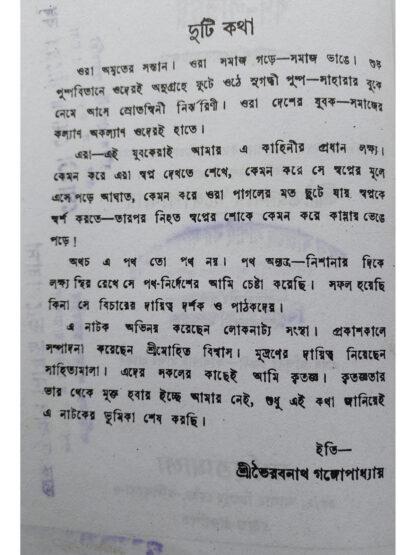 দুটি কথা
ওরা অমৃতের সন্তান। ওরা সমাজ গড়ে—সমাজ ভাঙে। শুষ্ক
পুষ্পবিতানে ওদেরই অনুগ্রহে ফুটে ওঠে সুগন্ধী পুষ্প—সাহারার বুকে
নেমে আসে স্রোতস্বিনী নির্ঝরিণী। ওরা দেশের যুবক—সমাজের
কল্যাণ অকল্যাণ ওদেরই হাতে।
এরা—এই যুবকেরাই আমার এ কাহিনীর প্রধান লক্ষ্য।
কেমন করে এরা স্বপ্ন দেখতে শেখে, কেমন করে সে স্বপ্নের মূলে
এসে পড়ে আঘাত, কেমন করে ওরা পাগলের মত ছুটে যায় স্বপ্নকে
স্পর্শ করতে—তারপর নিহত স্বপ্নের শোকে কেমন করে কান্নায় ভেঙে
পড়ে!
অথচ এ পথ তো পথ নয়। পথ অন্যত্র—নিশানার দিকে
লক্ষ্য স্থির রেখে সে পথ-নির্দেশের আমি চেষ্টা করেছি। সফল হয়েছি
কিনা সে বিচারের দায়িত্ব দর্শক ও পাঠকদের।
এ নাটক অভিনয় করেছেন লোকনাট্য সংস্থা। প্রকাশকালে
সম্পাদনা করেছেন শ্রীমোহিত বিশ্বাস। মুদ্রণের দায়িত্ব নিয়েছেন
সাহিত্যমালা। এদের সকলের কাছেই আমি কৃতজ্ঞ। কৃতজ্ঞতার
ভার থেকে মুক্ত হবার ইচ্ছে আমার নেই, শুধু এই কথা জানিয়েই
এ নাটকের ভূমিকা শেষ করছি।
ইতি—
শ্রীভৈরবনাথ গঙ্গোপাধ্যায়